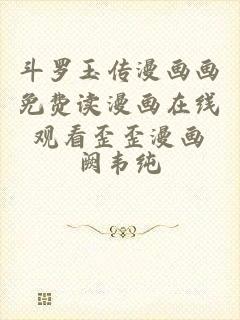 斗罗玉传漫画画
免费读漫画在线
观看歪歪漫画
阙韦纯